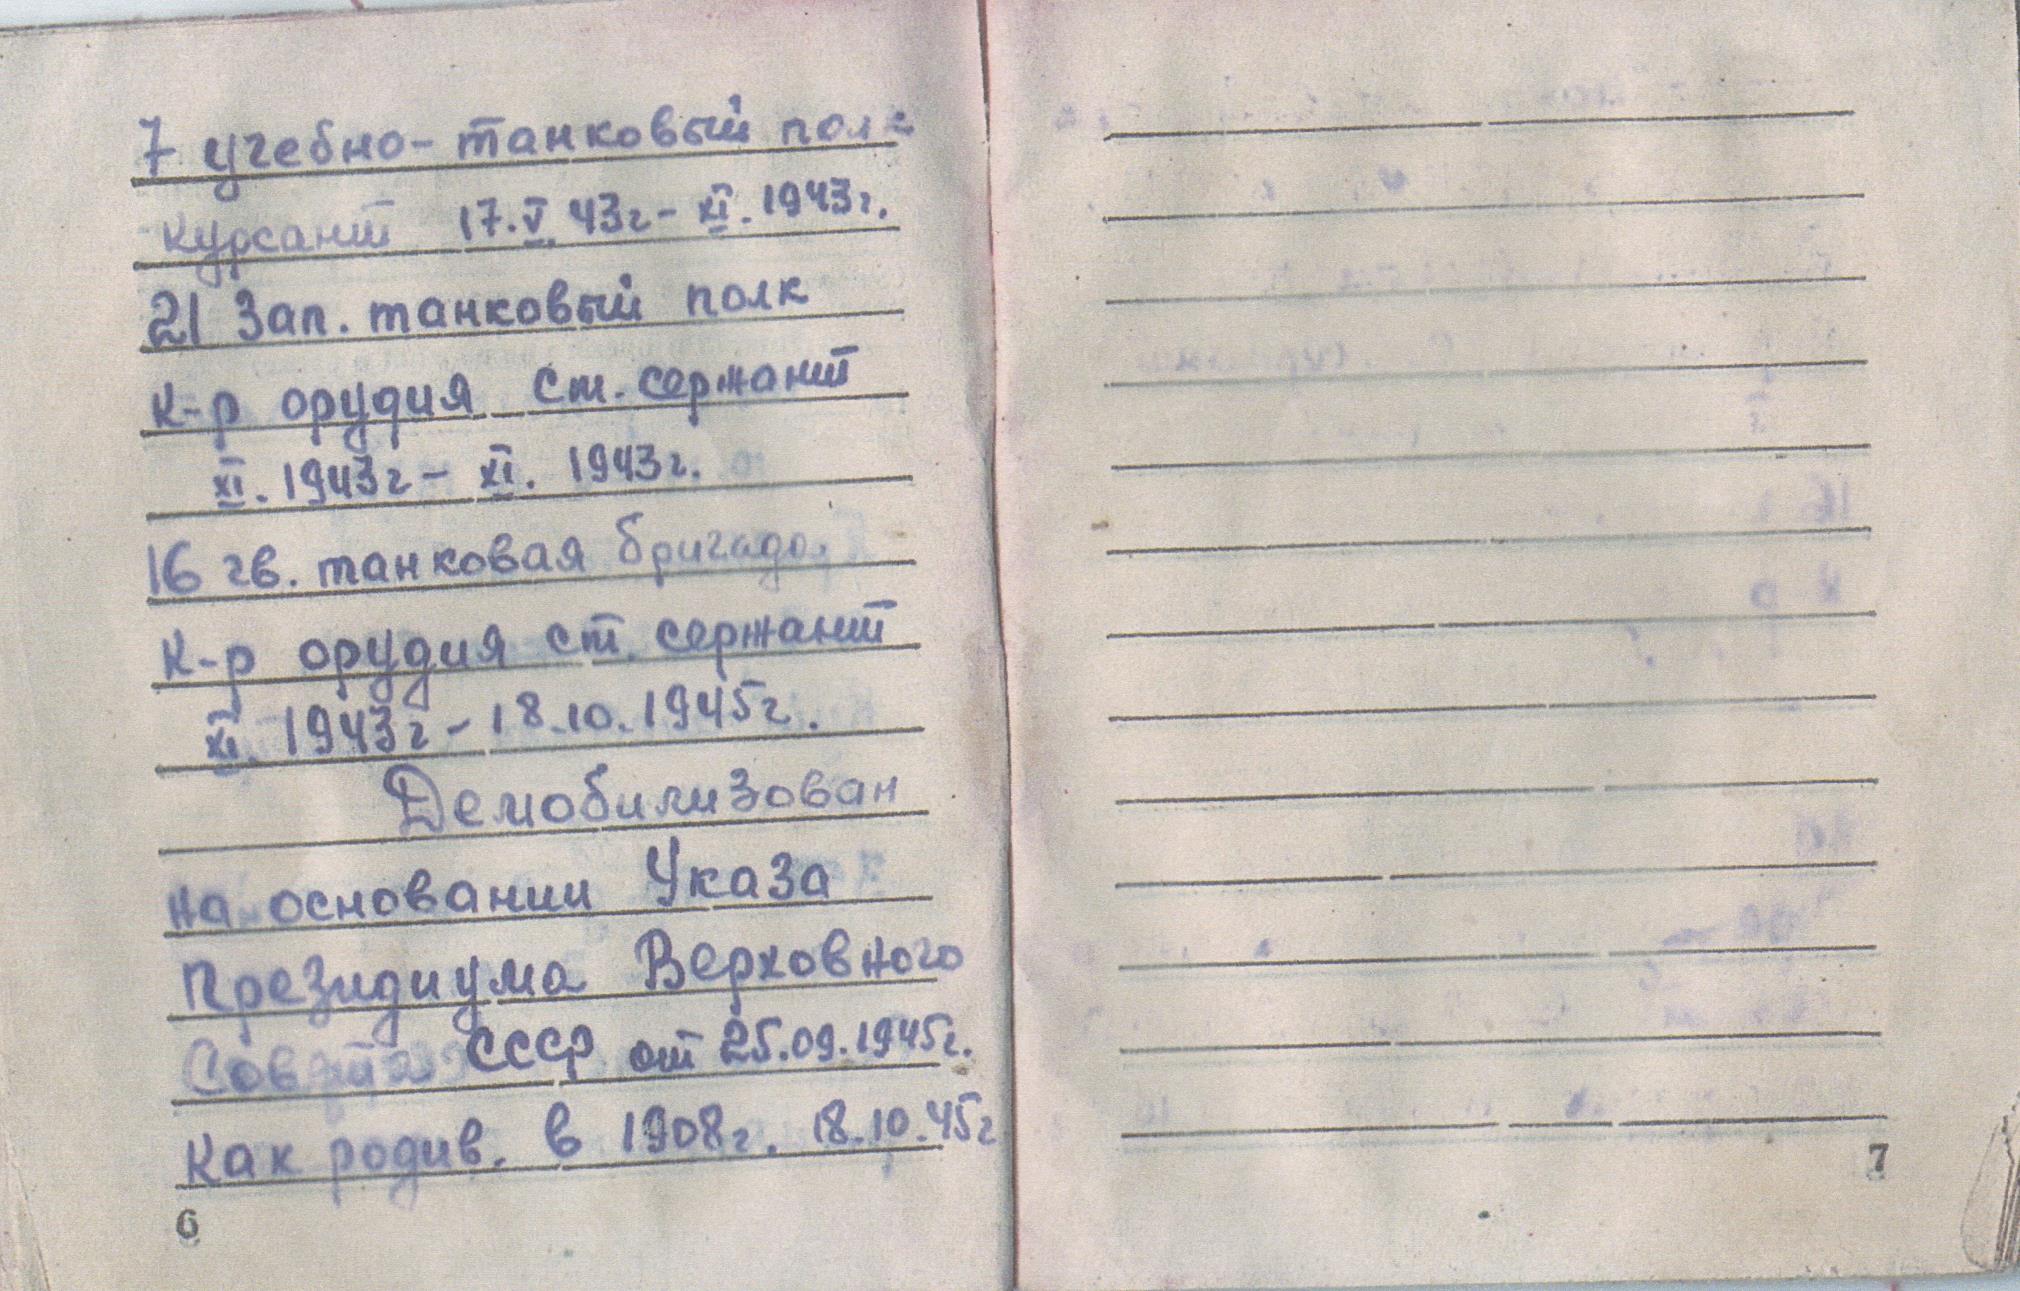 7 учебно-танковый полк
курсант 17.V.43г - XI. 1943г.
21 Зап. танковый полк
к-р орудия ст. сержант
XI. 1943г - XI. 1943г.
16 гв. танковая бригада
к-р орудия ст. сержант
XI. 1943г - 18.10.1945г.
Демобилизован
на основании Указа
Президиума Верховного
Совета СССР от 25.09.1945г.
Как родив. в 1908г. 18.10.45г
6
7